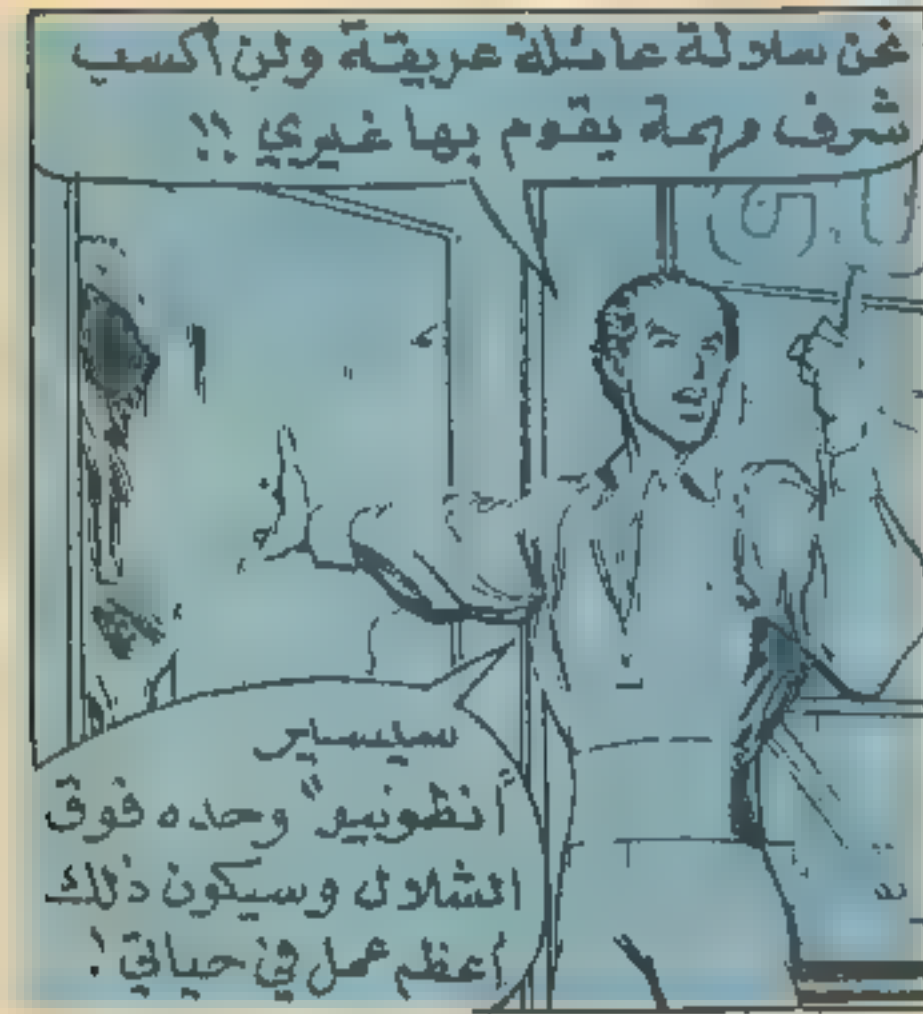 نحن سلالة عائلة عريقة ولن أكسب
شرف مهمة يقوم بها غيري !!
أنطونيو" وحده فوق
الشلال وسيكون ذلك
أعظم عمل في حياتي !